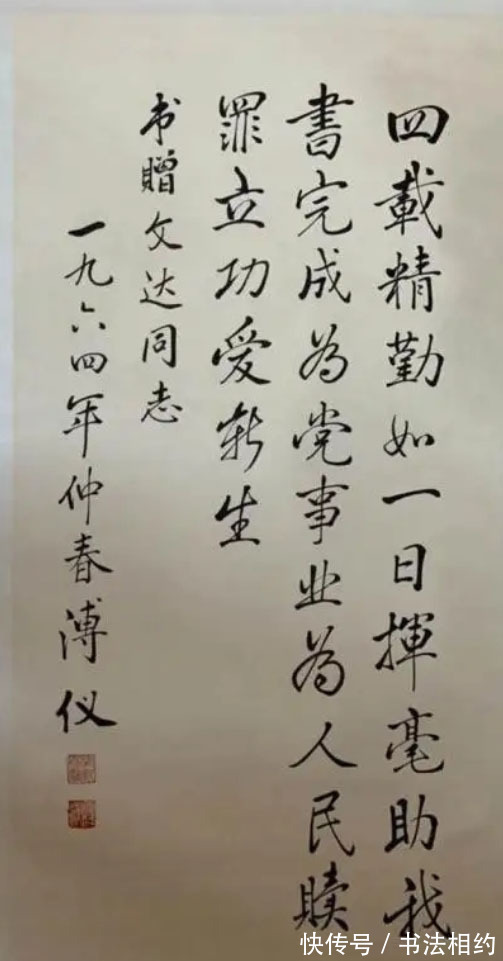 四載精勤如一日揮毫助我
書完成為党事业為人民贖
罪立功爱新生
书贈文达同志
一九六四年仲春溥仪
快传号/书法相约